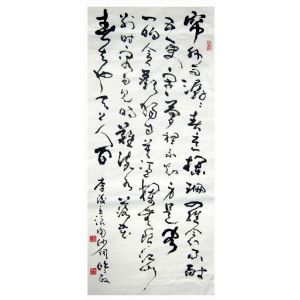 帘外雨潺潺春意阑珊罗衾不耐
五更寒梦里不知身是客
一晌贪欢独自莫凭栏无限江山
别时容易见时难流水落花
春去也天上人间
李后主浪淘沙词